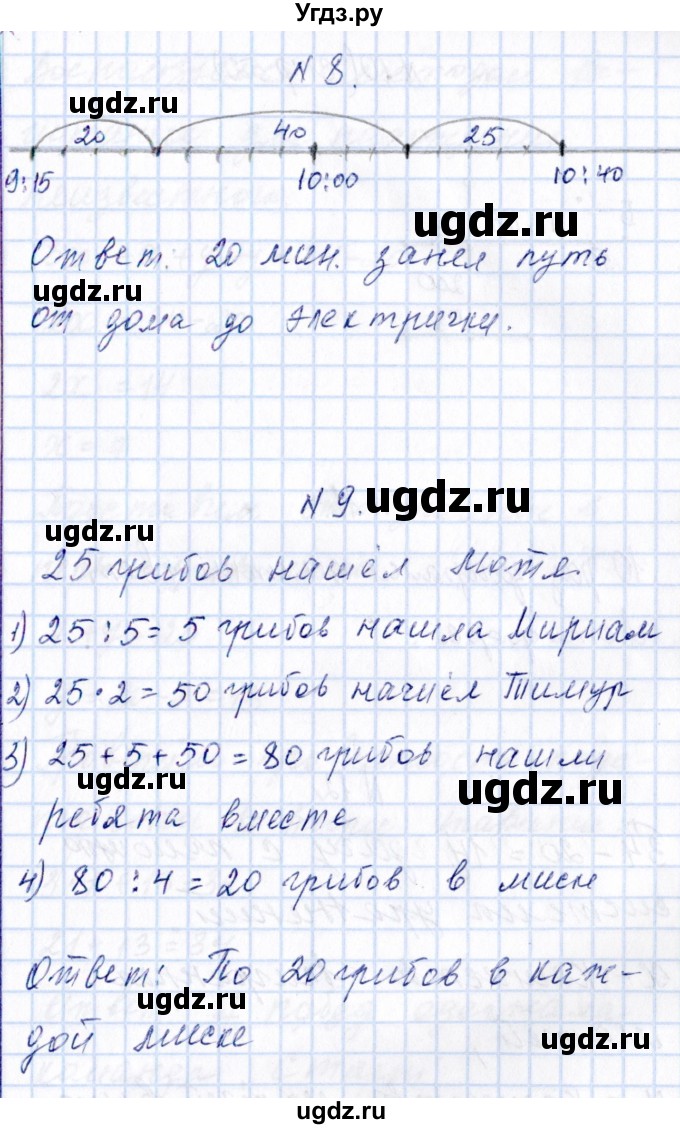 Угдз.ру
N 8.
ugdz.ru
20 40 25
9:15 10:00 10:40
ugdz.ru
Ответ: 20 мин. занял путь
ugdz.ru
от дома до электрички.
N 9.
ugdz.ru
ugdz.ru
25 грибов нашёл Мотя.
1) 25 : 5 = 5 грибов нашла Мириам
2) 25 · 2 = 50 грибов нашёл Тимур
3) 25 + 5 + 50 = 80 грибов нашли
ugdz.ru
ugdz.ru
ребята вместе
4) 80 : 4 = 20 грибов в миске
Ответ: По 20 грибов в каж-
ugdz.ru
дой миске
ugdz.ru
ugdz.ru